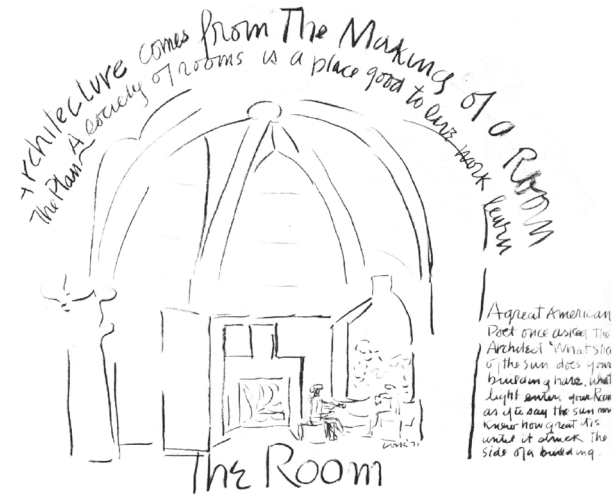 Architecture comes from The Making of a Room
The Plan A society of rooms is a place good to live work learn
A great American
Poet once asked the
Architect 'What
of the sun does your
building have, what
light enters your Room
as if to say the sun
knew how great it is
until it struck the
side of a building.
The Room